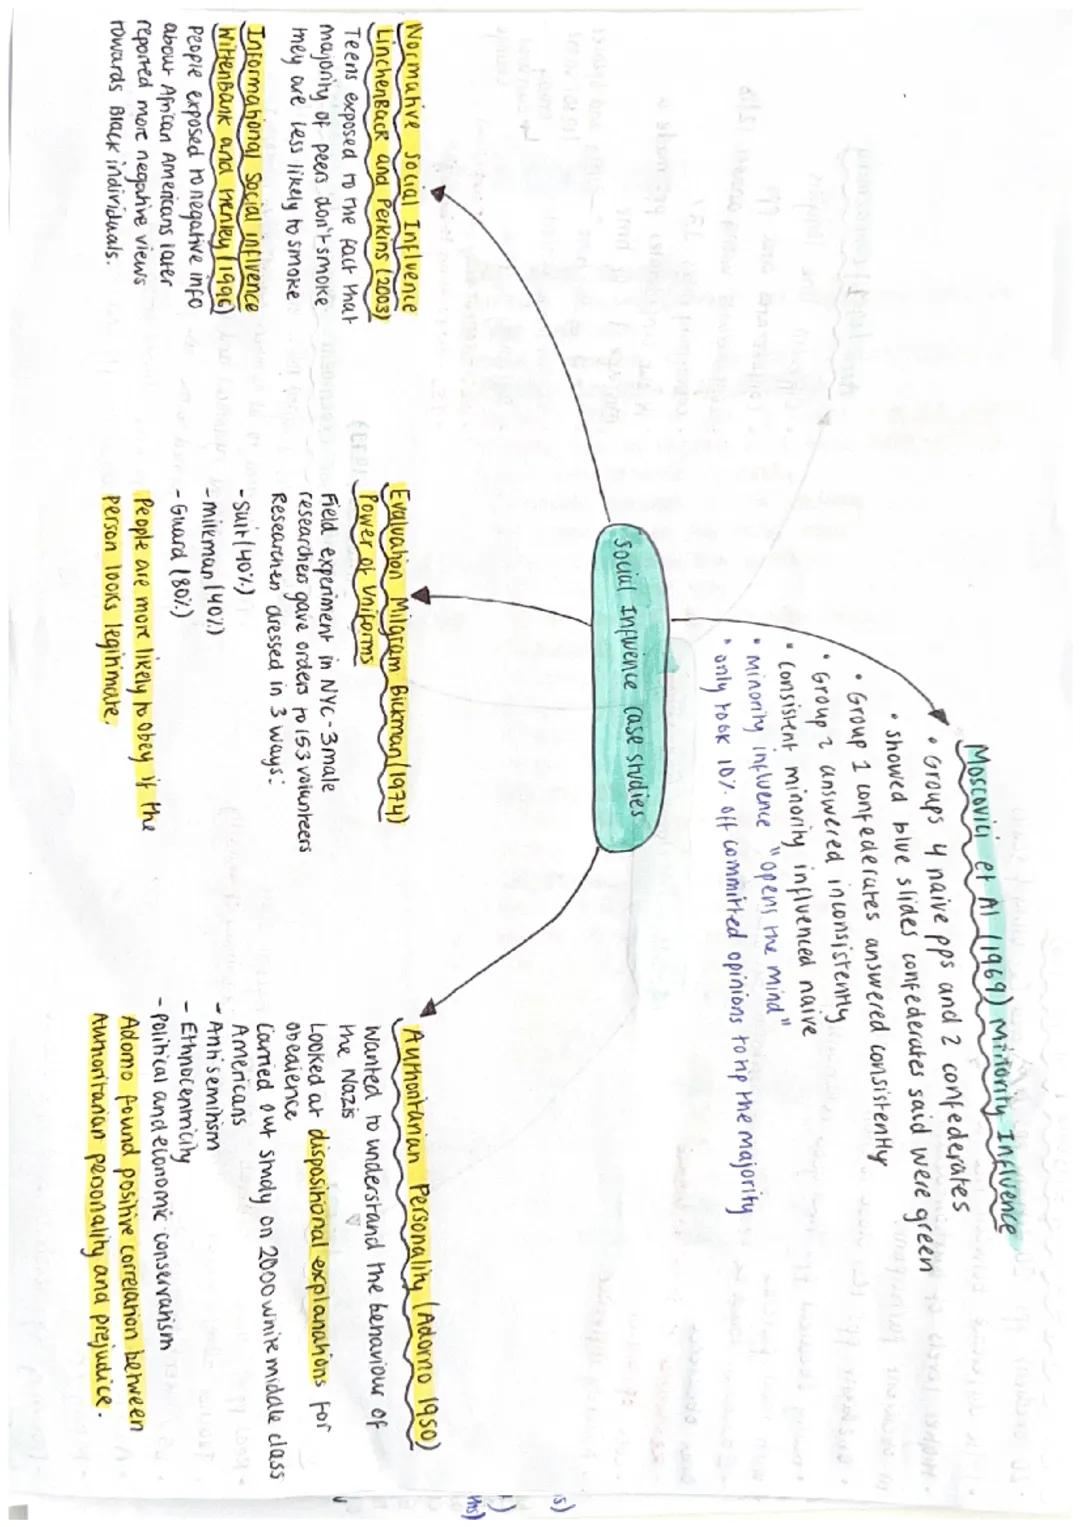 Social Influence case studies
Moscovici et Al (1969) Minority Influence
• Groups 4 naive pps and 2 confederates
• showed blue slides confederates said were green
• Group 1 confederates answered consistently
• Group 2 answered inconsistently
• Consistent minority influenced naive
• Minority influence "opens the mind"
• only took 10% off committed opinions to tip the majority
Normative Social Influence
LinchenBack and Perkins (2003)
Teens exposed to the fact that
majority of peers don't smoke
they are less likely to smoke
Informational Social influence
WittenBank and Henley (1996)
People exposed to negative info
about African Americans later
reported more negative views
towards Black individuals.
Evaluation Milgram Bickman (1974)
Power of Uniforms
Field experiment in NYC - 3 male
researchers gave orders to 153 volunteers
Researchers dressed in 3 ways:
- Suit (40%)
- milkman (40%)
- Guard (80%)
People are more likely to obey if the
person looks legitimate.
Authoritarian Personality (Adorno 1950)
Wanted to understand the behaviour of
the Nazis
Looked at dispositional explanations for
obedience
Carried out study on 2000 white middle class
Americans
- Antisemitism
- Ethnocentricity
- Political and economic conservatism
Adorno found positive correlation between
Authoritarian personality and prejudice.